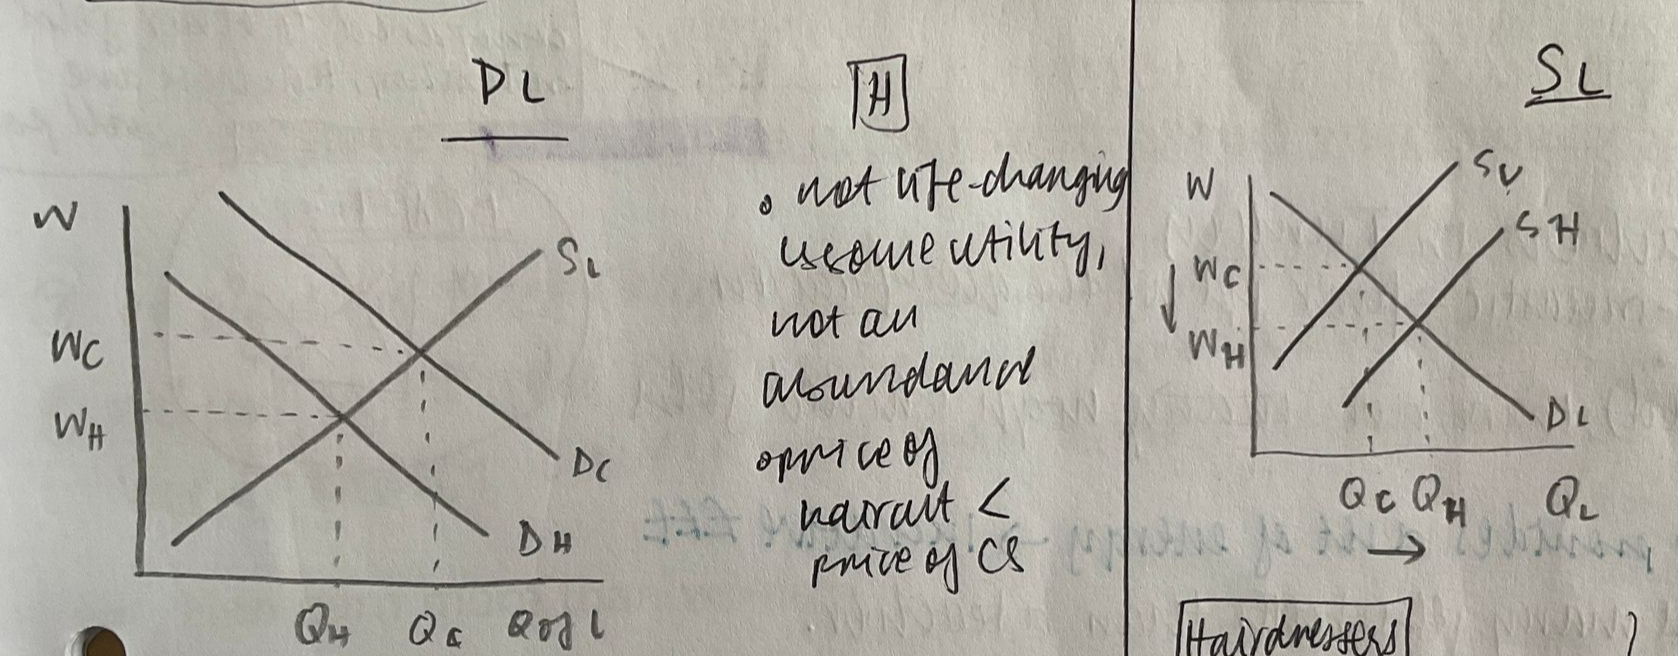 DL
W
SL
WC
WH
DC
DH
QH QC Q of L
H
not life-changing
some utility,
not an
abundance
price of
haircut <
price of CS
SL
W
SH
WC
WH
DL
QC QH QL
Hairdressers